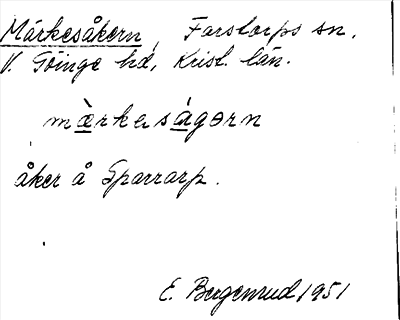 Märkesåkern, Farstorps sn,
V. Göinge hd, Krist. län.
mæ̀rkesågərn
åker å Sparrarp.
E. Bergenrud 1951